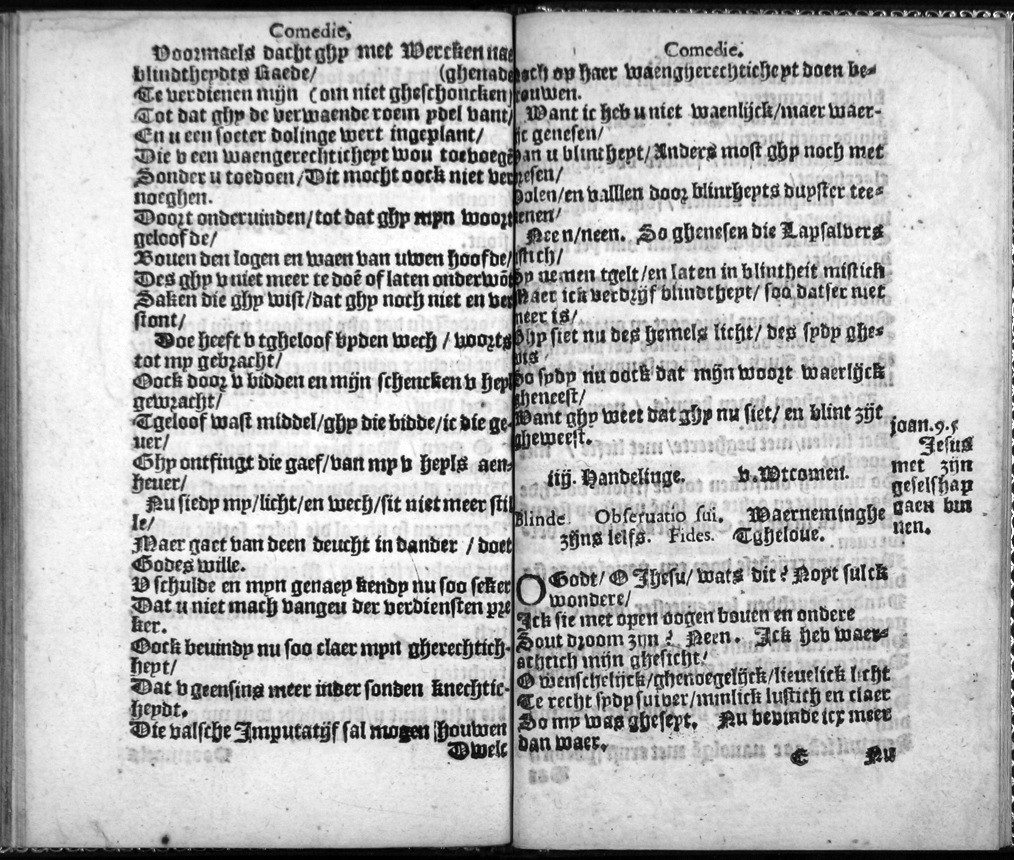 Comedie.
Voormaels dacht ghy met Wercken nae
blindtheydts Raede/ (ghenade
Te verdienen mijn (om niet gheschoncken)
Tot dat ghy de verwaende roem ydel vant/
En u een soeter dolinge wert ingeplant/
Die v een waengerechticheyt wou toevoegē
Sonder u toedoen/Dit mocht oock niet ver
noeghen.
Doort ondervinden/tot dat ghy mpn woort
geloofde/
Bouen den logen en waen van uwen hoofde/
Des ghy v niet meer te doē of laten onderwōt
Saken die ghy wist/dat ghy noch niet en ver
stont/
Doe heeft v tgheloof vpden wech / voorts
tot my gebracht/
Oock door v bidden en mijn schencken v heyl
gewracht/
Tgeloof wast middel/ghy die bidde/ic die ge-
uer/
Ghy ontfingt die gaef/van my v heyls aen-
heuer/
Nu siedy my/licht/en wech/sit niet meer stil
le/
Maer gaet van deen deucht in dander / doet
Godes wille.
V schulde en mpn genaey kendy nu soo seker
Dat u niet mach vangeu der verdiensten pre
ker.
Oock bevindy nu soo claer mpn gherechtich-
heyt/
Dat v geensins meer inder sonden knechtic-
heydt.
Die valsche Imputatijf sal mogen houwen
Dwelc
Comedie.
och op haer waengherechticheyt doen be-
rouwen.
Want ic heb u niet waenlijck/maer waer-
ijc genesen/
Van u blintheyt/Anders most ghy noch met
resen/
Dolen/en valllen door blintheyts duyster tee-
kenen/
Neen/neen. So ghenesen die Lapsalvers
istich/
Sy nemen tgelt/en laten in blintheit mistich
Maer ick verdrijf blindtheyt/ soo datser niet
meer is/
Ghy siet nu des hemels licht/ des sydy ghe-
wis/
So sydy nu oock dat mijn woort waerlijck
gheneest/
Want ghy weet dat ghy nu siet/ en blint zijt
gheweest.
iiij. Handelinge. v. Wtcomen.
Joan.9.5
Jesus
met zijn
geselschap
gaen bin
nen.
Blinde. Observatio sui. Waerneminghe
zijns selfs. Fides. Tgheloue.
O Godt/ O Jhesu/ wats dit? Noyt sulck
wondere/
Ick sie met open oogen bouen en ondere
Sout droom zyn? Neen. Ick heb waer-
achtich mijn ghesicht/
O wenschelijck/ghenoegelijck/lieuelick licht
Te recht sydy suiver/minlick lustich en claer
So my was gheseyt. Nu bevinde icx meer
dan waer.
C Nu